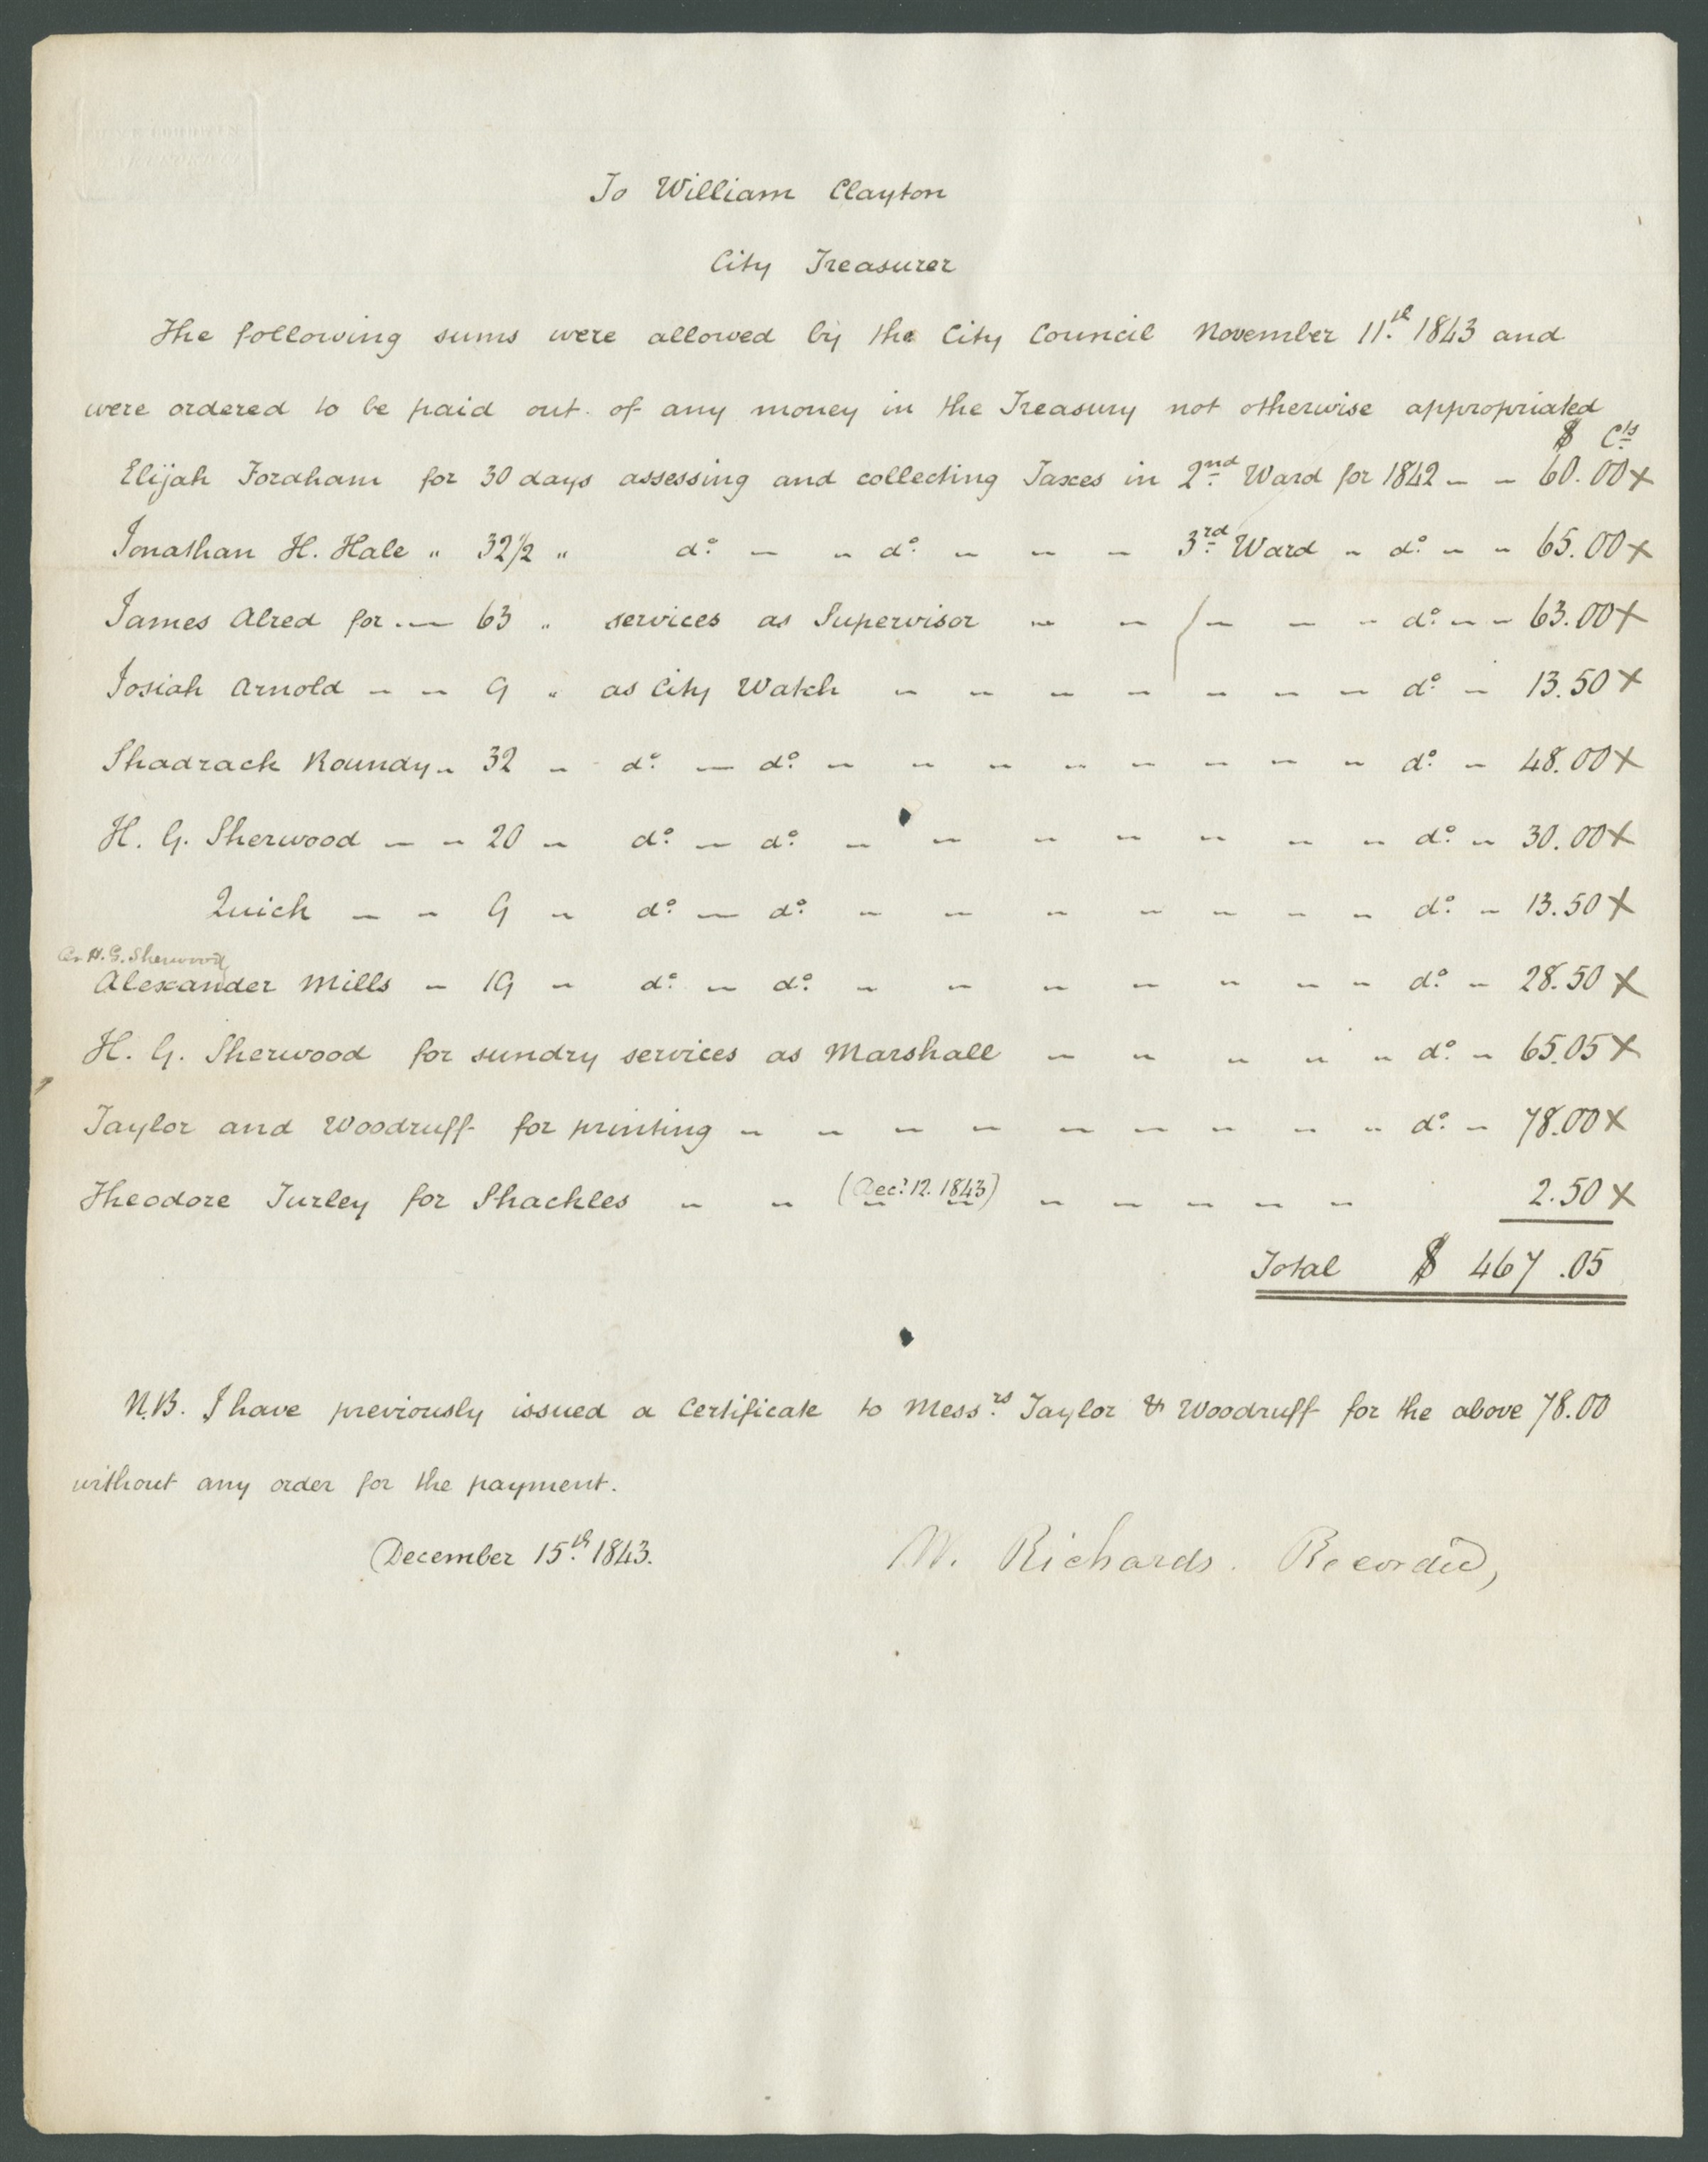 To William Clayton
City Treasurer
The following sums were allowed by the City Council November 11th. 1843 and
were ordered to be paid out of any money in the Treasury not otherwise appropriated
$ Cts
Elijah Fordham for 30 days assessing and collecting Taxes in 2nd. Ward for 1842 - - 60.00 X
Jonathan H. Hale " 32 1/2 " do. - " do. - - - 3rd. Ward " do. - - 65.00 X
James Alred for. — 63 " services as Supervisor - - - - - do. - - 63.00 X
Josiah Arnold - - 9 " as City Watch - - - - - - - do. - 13.50 X
Shadrack Roundy - 32 - do. - do. - - - - - - - - do. - 48.00 X
H. G. Sherwood - - 20 - do. - do. - - - - - - - do. - 30.00 X
Quich - - 9 - do. - do. - - - - - - - do. - 13.50 X
H. G. Sherwood
Alexander Mills - 19 - do. - do. - - - - - - - do. - 28.50 X
H. G. Sherwood for sundry services as Marshall - - - - - do. - 65.05 X
Taylor and Woodruff for printing - - - - - - - - - do. - 78.00 X
Theodore Turley for Shackles - - (Dec. 12. 1843) - - - - - 2.50 X
Total $ 467.05
N.B. I have previously issued a Certificate to Messrs. Taylor & Woodruff for the above 78.00
without any order for the payment.
December 15th. 1843. W. Richards. Recorder,